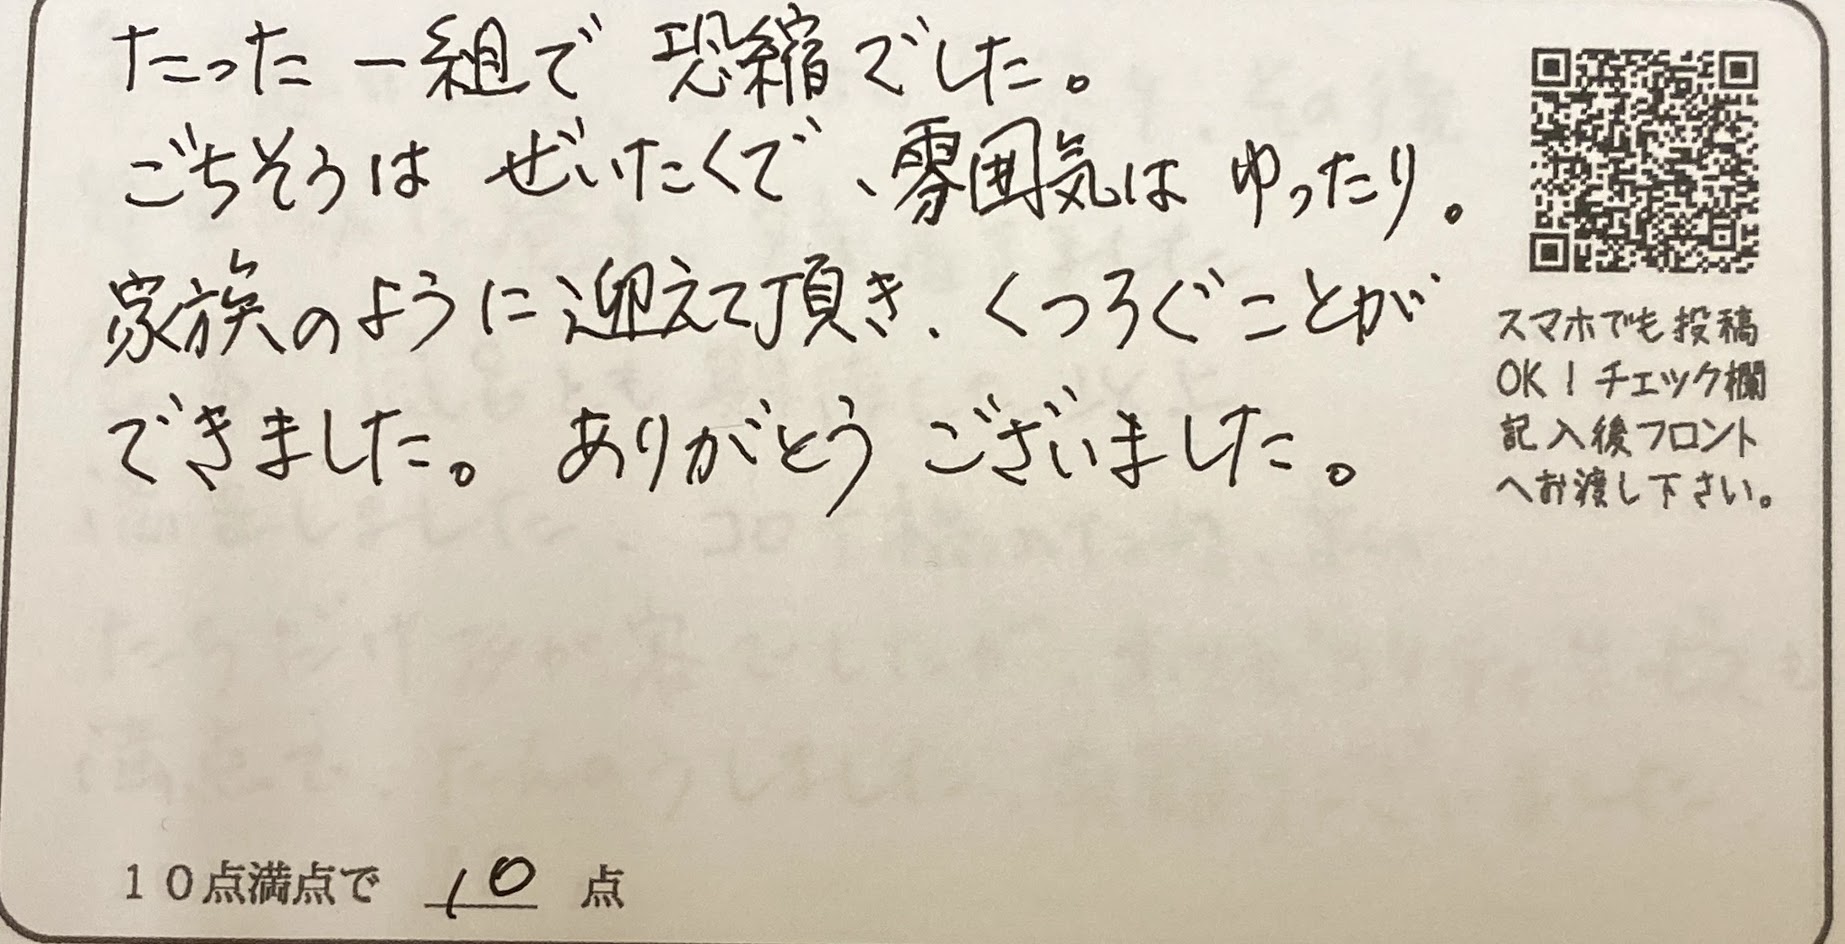 たった一組で 恐縮でした。
ごちそうは ぜいたくで、雰囲気は ゆったり。
家族のように迎えて頂き、くつろぐことが
できました。 ありがとう ございました。
スマホでも投稿
OK!チェック欄
記入後フロント
へお渡し下さい。
10点満点で 10 点